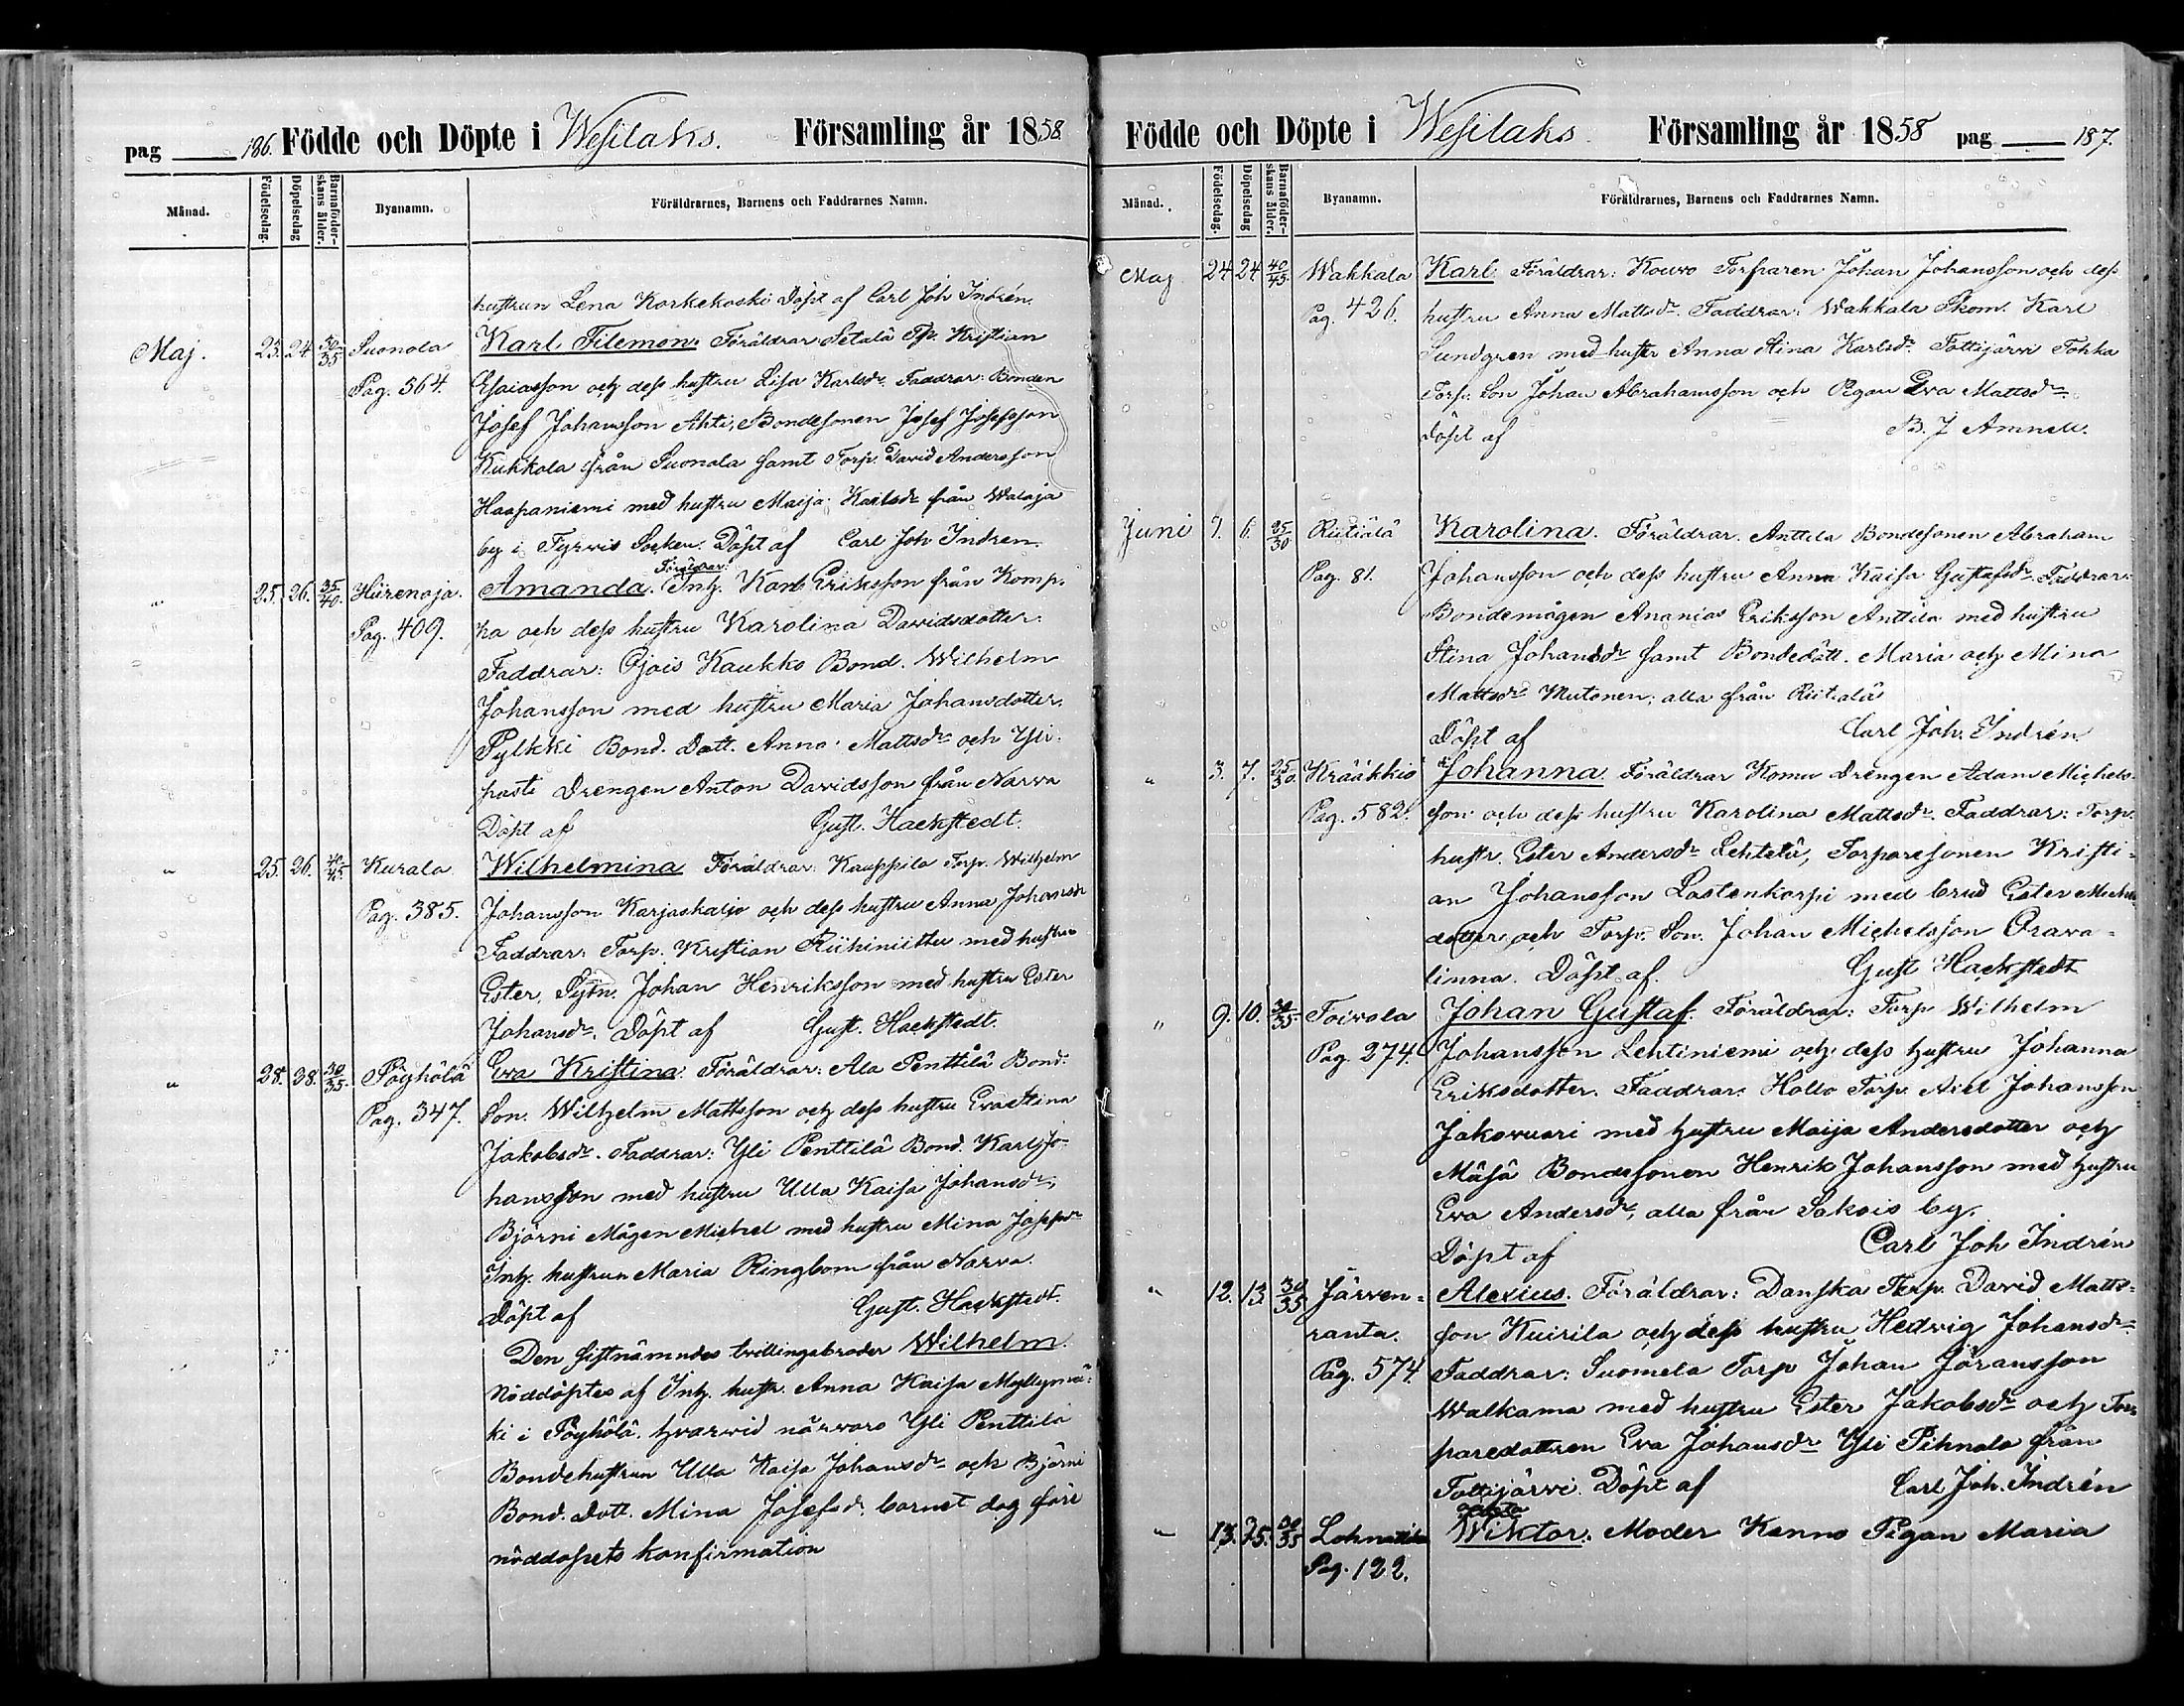 pag 186. Födde och Döpte i Wesilaks. Församling år 1858.
Månad. Födelsedag. Döpelsedag Barnaföderskans ålder. Byanamn. Föräldrarnes, Barnens och Faddrarnes Namn.
hustrun Lena Korkekoski Döpt af Carl Joh Indrén.
Maj. 23. 24 30/35 Suonola Karl Filemon. Föräldrar Setalä Tp. Kristian
Pag. 564. Esaiasson och dess hustru Lisa Karlsdr. Faddrar: Bonden
Josef Johansson Ahti, Bondesonen Josef Josefsson
Kukkola från Suonola samt Torp. David Andersson
Haapaniemi med hustru Maija Karlsdr från Walaja
by i Tyrvis Socken. Döpt af Carl Joh Indren.
Föräldrar:
" 25. 26. 35/40. Hiirenoja. Amanda. Inh. Karl Eriksson från Komp.
Pag. 409. pa och dess hustru Karolina Davidsdotter.
Faddrar: Ojois Kaukko Bond. Wilhelm
Johansson med hustru Maria Johansdotter.
Pylkki Bond. Dott. Anna Mattsdr och Yli
paste Drengen Anton Davidsson från Narva
Döpt af Gust. Hackstedt.
" 25. 26. 40/45. Kurala Wilhelmina Föräldrar: Kauppila Torp. Wilhelm
Pag. 385. Johansson Karjaskaljo och dess hustru Anna Johansdr
Faddrar: Torp. Kristian Riihiniittu med hustru
Ester, Sytn. Johan Henriksson med hustru Ester
Johansdr. Döpt af Gust. Hackstedt.
" 28. 28. 30/35. Pöyhölä Eva Kristina. Föräldrar: Ala Penttilä Bond.
Pag. 347. Son. Wilhelm Mattsson och dess hustru Eva Stina
Jakobsdr. Faddrar: Yli Penttilä Bond. Karl Jo-
hansson med hustru Ulla Kaisa Johansdr,
Björni Mågen Michel med hustru Mina Josefsdr
Inh. hustrun Maria Ringbom från Narva.
Döpt af Gust. Hackstedt.
Den sistnämndes tvillingsbroder Wilhelm.
nöddöptes af Inh. hustr. Anna Kaisa Myllymä-
ki i Pöyhölä. hvarvid närvaro Yli Penttilä
Bondehustrun Ulla Kaisa Johansdr och Björni
Bond. Dott. Mina Josefsdr. barnet dog före
nöddopets konfirmation
Födde och Döpte i Wesilaks. Församling år 1858 pag 187.
Månad. Födelsedag. Döpelsedag Barnaföderskans ålder. Byanamn. Föräldrarnes, Barnens och Faddrarnes Namn.
Maj 24 24 40/45. Wakkala Karl Föräldrar: Kouvo Torparen Johan Johansson och dess
Pag. 426. hustru Anna Mattsdr. Faddrar: Wakkala Skom. Karl
Sundgren med hustr Anna Stina Karlsdr. Tottijärvi Tohka
Torp. Son Johan Abrahamsson och Pigan Eva Mattsdr
Döpt af B. J Amnell.
Juni 1. 6. 25/30 Riitiälä Karolina. Föräldrar. Anttila Bondesonen Abraham
Pag. 81. Johansson och dess hustru Anna Kaisa Gustafsdr. Faddrar:
Bondemågen Ananias Eriksson Anttila med hustru
Stina Johansdr samt Bondedött. Maria och Mina
Mattsdr Mutonen, alla från Riitialä
Döpt af Carl Joh. Indrén.
" 3. 7. 25/30 Krääkkiö Johanna. Föräldrar Komu Drengen Adam Michels-
Pag. 582. son och dess hustru Karolina Mattsdr. Faddrar: Torp.
hustr. Ester Andersdr Lehtelä, Torparesonen Kristi-
an Johansson Lastenkorpi med brud Ester Michels
dotter och Torp. Son. Johan Michelsson Orava-
linna. Döpt af. Gust Hackstedt
" 9. 10. 30/35 Toivola Johan Gustaf. Föräldrar: Torp Wilhelm
Pag. 274. Johansson Lehtiniemi och dess hustru Johanna
Eriksdotter. Faddrar: Hollo Torp. Axel Johansson
Jakovuori med hustru Maija Andersdotter och
Mäsä Bondesonen Henrik Johansson med hustru
Eva Andersdr, alla från Sakois by.
Döpt af Carl Joh Indrén
" 12. 13 30/35 Järven- Alexius. Föräldrar: Danska Torp. David Matts-
ranta. son Kuirila och dess hustru Hedvig Johansdr
Pag. 574 Faddrar: Suomela Torp Johan Göransson
Walkama med hustru Ester Jakobsdr och Tor-
paredottren Eva Johansdr Yli Pihnala från
Tottijärvi. Döpt af Carl Joh. Indrén
" 13. 25. 30/35 Wiktor. Moder Kenno Pigan Maria
Pag. 122.